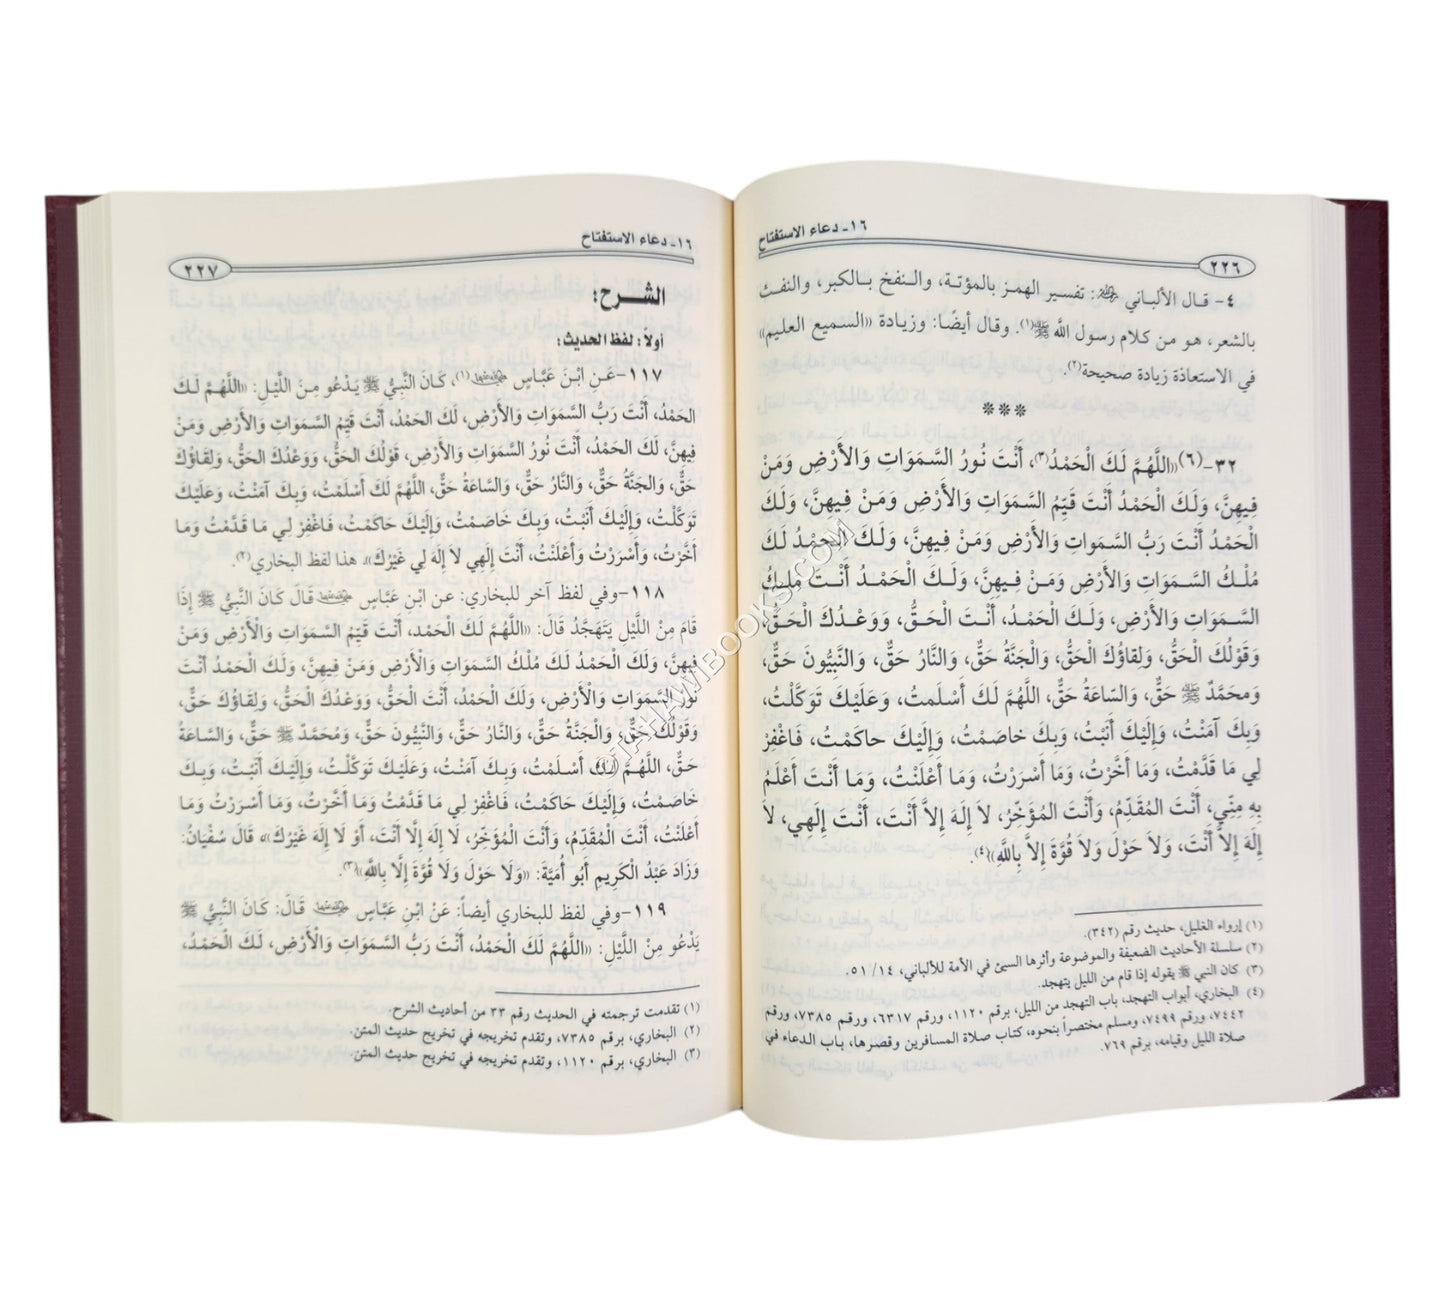 ١٦- دعاء الاستفتاح
٢٢٦
٤- قال الألباني رحمه الله: تفسير الهمز بالمؤتة، والنفخ بالكبر، والنفث
بالشعر، هو من كلام رسول الله ﷺ(١). وقال أيضًا: وزيادة «السميع العليم»
في الاستعاذة زيادة صحيحة(٢).
***
٣٢-(٦)«اللَّهُمَّ لَكَ الْحَمْدُ(٣)، أَنْتَ نُورُ السَّمَوَاتِ وَالأَرْضِ وَمَنْ
فِيهِنَّ، وَلَكَ الْحَمْدُ أَنْتَ قَيِّمُ السَّمَوَاتِ وَالأَرْضِ وَمَنْ فِيهِنَّ، وَلَكَ
الْحَمْدُ أَنْتَ رَبُّ السَّمَواتِ وَالأَرْضِ وَمَنْ فِيهِنَّ، وَلَكَ الْحَمْدُ لَكَ
مُلْكُ السَّمَوَاتِ وَالأَرْضِ وَمَنْ فِيهِنَّ، وَلَكَ الْحَمْدُ أَنْتَ مَلِكُ
السَّمَوَاتِ وَالأَرْضِ، وَلَكَ الْحَمْدُ، أَنْتَ الْحَقُّ، وَوَعْدُكَ الْحَقُّ،
وَقَوْلُكَ الْحَقُّ، وَلِقاؤُكَ الْحَقُّ، وَالْجَنَّةُ حَقٌّ، وَالنَّارُ حَقٌّ، وَالنَّبِيُّونَ حَقٌّ،
وَمحَمَّدٌ ﷺ حَقٌّ، وَالسّاعَةُ حَقٌّ، اللَّهُمَّ لَكَ أَسْلَمتُ، وَعَلَيْكَ تَوَكَّلْتُ،
وَبِكَ آمَنْتُ، وَإِلَيْكَ أَنَبْتُ، وَبِكَ خاصَمْتُ، وَإِلَيْكَ حاكَمْتُ، فَاغْفِرْ
لِي مَا قَدَّمْتُ، وَمَا أَخَّرْتُ، وَمَا أَسْرَرْتُ، وَمَا أَعْلَنْتُ، وَمَا أَنْتَ أَعْلَمُ
بِهِ مِنِّي، أَنْتَ المُقَدِّمُ، وَأَنْتَ المُؤَخِّرُ، لاَ إِلَهَ إِلاَّ أَنْتَ، أَنْتَ إِلَهِي، لاَ
إِلَهَ إِلاَّ أَنْتَ، وَلاَ حَوْلَ وَلاَ قُوَّةَ إِلاَّ بِاللَّهِ»(٤).
(١) إرواء الغليل، حديث رقم (٣٤٢).
(٢) سلسلة الأحاديث الضعيفة والموضوعة وأثرها السيئ في الأمة للألباني، ١٤/ ٥١.
(٣) كان النبي ﷺ يقوله إذا قام من الليل يتهجد.
(٤) البخاري، أبواب التهجد، باب التهجد من الليل، برقم ١١٢٠، ورقم ٦٣١٧، ورقم ٧٣٨٥، ورقم
٧٤٤٢، ورقم ٧٤٩٩، ومسلم مختصراً بنحوه، كتاب صلاة المسافرين وقصرها، باب الدعاء في
صلاة الليل وقيامه، برقم ٧٦٩.
١٦- دعاء الاستفتاح
٢٢٧
الشرح:
أولاً: لفظ الحديث:
١١٧-عَنِ ابْنَ عَبَّاسٍ رضي الله عنهما(١)، كَانَ النَّبِيُّ ﷺ يَدْعُو مِنَ اللَّيْلِ: «اللَّهُمَّ لَكَ
الحَمْدُ، أَنْتَ رَبُّ السَّمَوَاتِ وَالأَرْضِ، لَكَ الحَمْدُ، أَنْتَ قَيِّمُ السَّمَوَاتِ وَالأَرْضِ وَمَنْ
فِيهِنَّ، لَكَ الحَمْدُ، أَنْتَ نُورُ السَّمَوَاتِ وَالأَرْضِ، قَوْلُكَ الحَقُّ، وَوَعْدُكَ الحَقُّ، وَلِقَاؤُكَ
حَقٌّ، وَالجَنَّةُ حَقٌّ، وَالنَّارُ حَقٌّ، وَالسَّاعَةُ حَقٌّ، اللَّهُمَّ لَكَ أَسْلَمْتُ، وَبِكَ آمَنْتُ، وَعَلَيْكَ
تَوَكَّلْتُ، وَإِلَيْكَ أَنَبْتُ، وَبِكَ خَاصَمْتُ، وَإِلَيْكَ حَاكَمْتُ، فَاغْفِرْ لِي مَا قَدَّمْتُ وَمَا
أَخَّرْتُ، وَأَسْرَرْتُ وَأَعْلَنْتُ، أَنْتَ إِلَهِي لاَ إِلَهَ لِي غَيْرُكَ». هذا لفظ البخاري(٢).
١١٨-وفي لفظ آخر للبخاري: عن ابْنِ عَبَّاسٍ رضي الله عنهما قَالَ كَانَ النَّبِيُّ ﷺ إِذَا
قَامَ مِنْ اللَّيْلِ يَتَهَجَّدُ قَالَ: «اللَّهُمَّ لَكَ الْحَمْد، أَنْتَ قَيِّمُ السَّمَوَاتِ وَالْأَرْضِ وَمَنْ
فِيهِنَّ، وَلَكَ الْحَمْدُ لَكَ مُلْكُ السَّمَوَاتِ وَالْأَرْضِ وَمَنْ فِيهِنَّ، وَلَكَ الْحَمْدُ أَنْتَ
نُورُ السَّمَوَاتِ وَالْأَرْضِ، وَلَكَ الْحَمْدُ، أَنْتَ الْحَقُّ، وَوَعْدُكَ الْحَقُّ، وَلِقَاؤُكَ حَقٌّ،
وَقَوْلُكَ حَقٌّ، وَالْجَنَّةُ حَقٌّ، وَالنَّارُ حَقٌّ، وَالنَّبِيُّونَ حَقٌّ، وَمُحَمَّدٌ ﷺ حَقٌّ، وَالسَّاعَةُ
حَقٌّ، اللَّهُمَّ لَكَ أَسْلَمْتُ، وَبِكَ آمَنْتُ، وَعَلَيْكَ تَوَكَّلْتُ، وَإِلَيْكَ أَنَبْتُ، وَبِكَ
خَاصَمْتُ، وَإِلَيْكَ حَاكَمْتُ، فَاغْفِرْ لِي مَا قَدَّمْتُ وَمَا أَخَّرْتُ، وَمَا أَسْرَرْتُ وَمَا
أَعْلَنْتُ، أَنْتَ الْمُقَدِّمُ، وَأَنْتَ الْمُؤَخِّرُ، لَا إِلَهَ إِلَّا أَنْتَ، أَوْ لَا إِلَهَ غَيْرُكَ»، قَالَ سُفْيَانُ:
وَزَادَ عَبْدُ الْكَرِيمِ أَبُو أُمَيَّةَ: «وَلَا حَوْلَ وَلَا قُوَّةَ إِلَّا بِاللَّهِ»(٣).
١١٩-وفي لفظ للبخاري أيضاً: عَنْ ابْنِ عَبَّاسٍ رضي الله عنهما قَالَ: كَانَ النَّبِيُّ ﷺ
يَدْعُو مِنْ اللَّيْلِ: «اللَّهُمَّ لَكَ الْحَمْدُ، أَنْتَ رَبُّ السَّمَوَاتِ وَالْأَرْضِ، لَكَ الْحَمْدُ،
(١) تقدمت ترجمته في الحديث رقم ٣٣ من أحاديث الشرح.
(٢) البخاري، برقم ٧٣٨٥، وتقدم تخريجه في تخريج حديث المتن.
(٣) البخاري، برقم ١١٢٠، وتقدم تخريجه في تخريج حديث المتن.
©TAHAWIBOOKS.COM